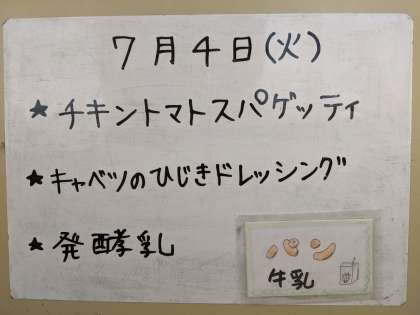 7月4日(火)
★チキントマトスパゲッティ
★キャベツのひじきドレッシング
★発酵乳
パン
牛乳